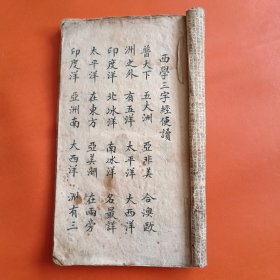 西學三字經便讀
普天下 五大洲 亞非美 合澳歐
洲之外 有五洋 太平洋 大西洋
印度洋 北冰洋 南冰洋 名最詳
太平洋 在東方 亞美湖 在兩旁
印度洋 亞洲南 大西洋 洲有三